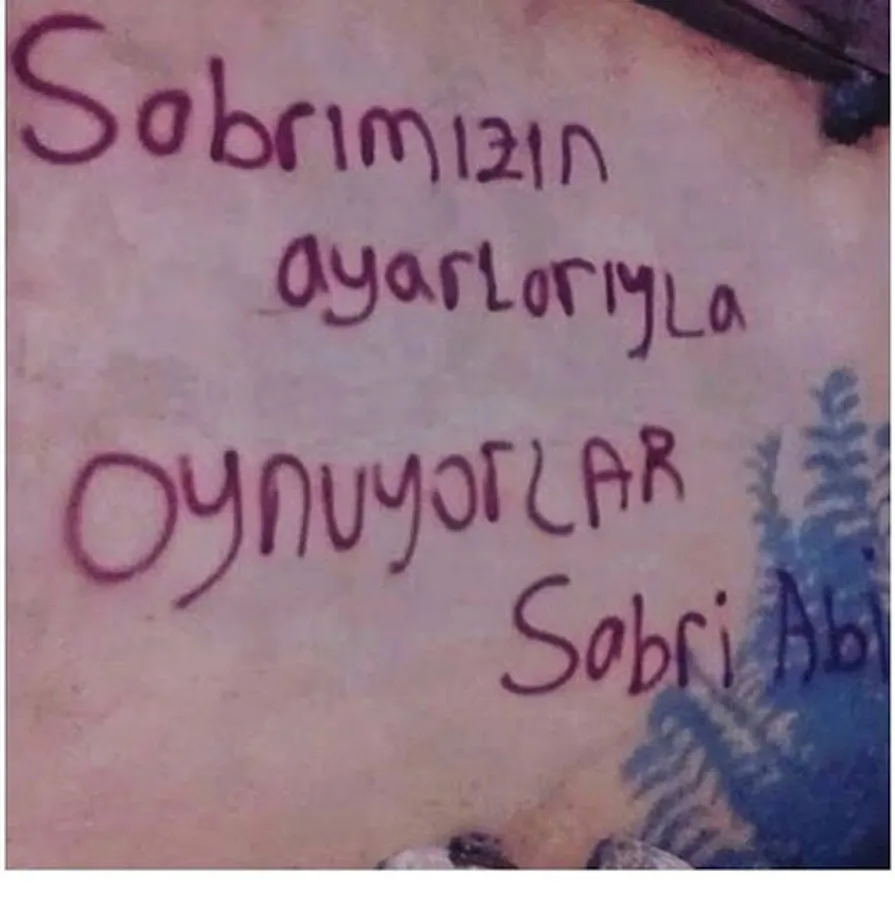 Sabrımızın
ayarlarıyla
OynuyorLAR
Sabri Abi